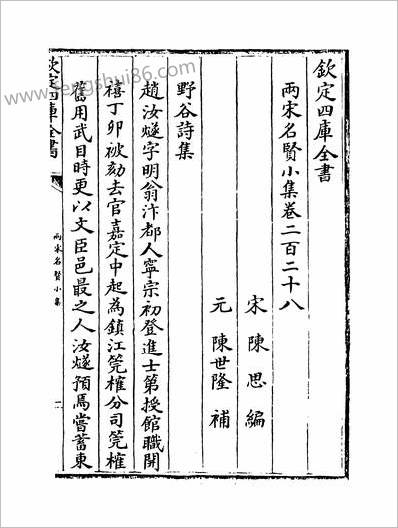 欽定四庫全書
兩宋名賢小集卷二百二十八
宋 陳思 編
元 陳世隆 補
野谷詩集
趙汝燧字明翁汴都人寧宗初登進士第授館職開
禧丁卯被劾去官嘉定中起為鎮江筦榷分司筦榷
舊用武目時更以文臣邑最之人汝燧預焉嘗蓄東
欽定四庫全書
兩宋名賢小集
www.fengshui86.com